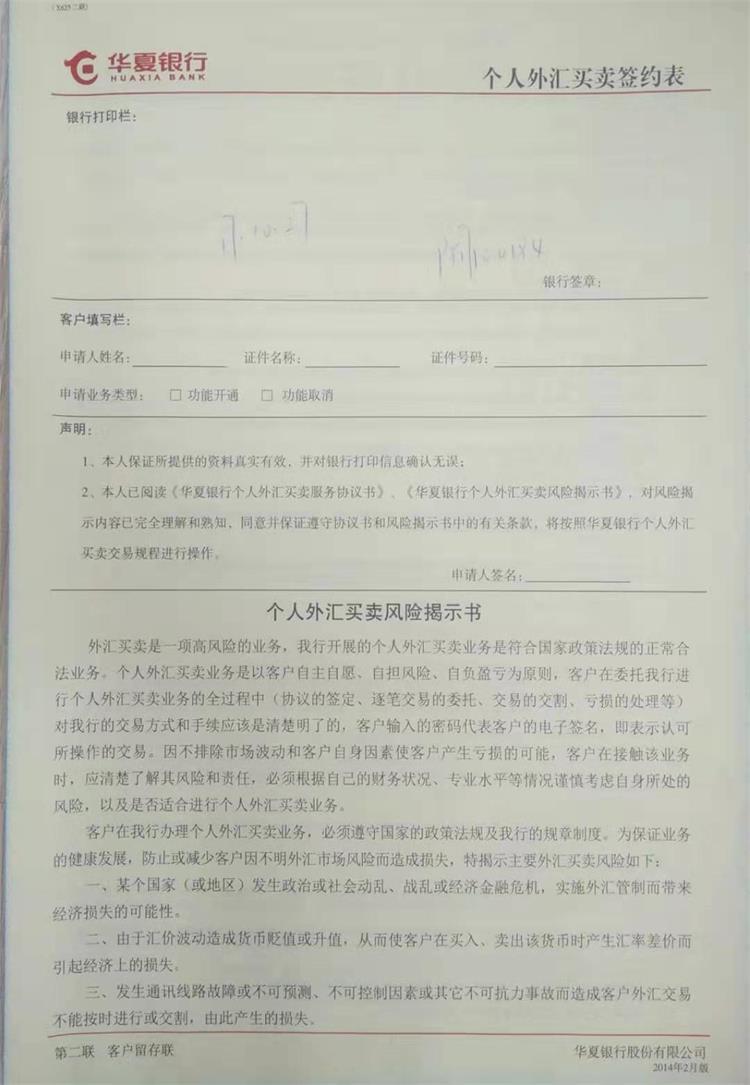 （X625 二联）
华夏银行
HUAXIA BANK
个人外汇买卖签约表
银行打印栏：
17.10.27
银行签章：
客户填写栏：
申请人姓名： 证件名称： 证件号码：
申请业务类型： □ 功能开通 □ 功能取消
声明：
1、本人保证所提供的资料真实有效，并对银行打印信息确认无误；
2、本人已阅读《华夏银行个人外汇买卖服务协议书》、《华夏银行个人外汇买卖风险揭示书》，对风险揭
示内容已完全理解和熟知，同意并保证遵守协议书和风险揭示书中的有关条款，将按照华夏银行个人外汇
买卖交易规程进行操作。
申请人签名：
个人外汇买卖风险揭示书
外汇买卖是一项高风险的业务，我行开展的个人外汇买卖业务是符合国家政策法规的正常合
法业务。个人外汇买卖业务是以客户自主自愿、自担风险、自负盈亏为原则，客户在委托我行进
行个人外汇买卖业务的全过程中（协议的签定、逐笔交易的委托、交易的交割、亏损的处理等）
对我行的交易方式和手续应该是清楚明了的，客户输入的密码代表客户的电子签名，即表示认可
所操作的交易。因不排除市场波动和客户自身因素使客户产生亏损的可能，客户在接触该业务
时，应清楚了解其风险和责任，必须根据自己的财务状况、专业水平等情况谨慎考虑自身所处的
风险，以及是否适合进行个人外汇买卖业务。
客户在我行办理个人外汇买卖业务，必须遵守国家的政策法规及我行的规章制度。为保证业务
的健康发展，防止或减少客户因不明外汇市场风险而造成损失，特揭示主要外汇买卖风险如下：
一、某个国家（或地区）发生政治或社会动乱、战乱或经济金融危机，实施外汇管制而带来
经济损失的可能性。
二、由于汇价波动造成货币贬值或升值，从而使客户在买入、卖出该货币时产生汇率差价而
引起经济上的损失。
三、发生通讯线路故障或不可预测、不可控制因素或其它不可抗力事故而造成客户外汇交易
不能按时进行或交割，由此产生的损失。
第二联 客户留存联 华夏银行股份有限公司
2014年2月版